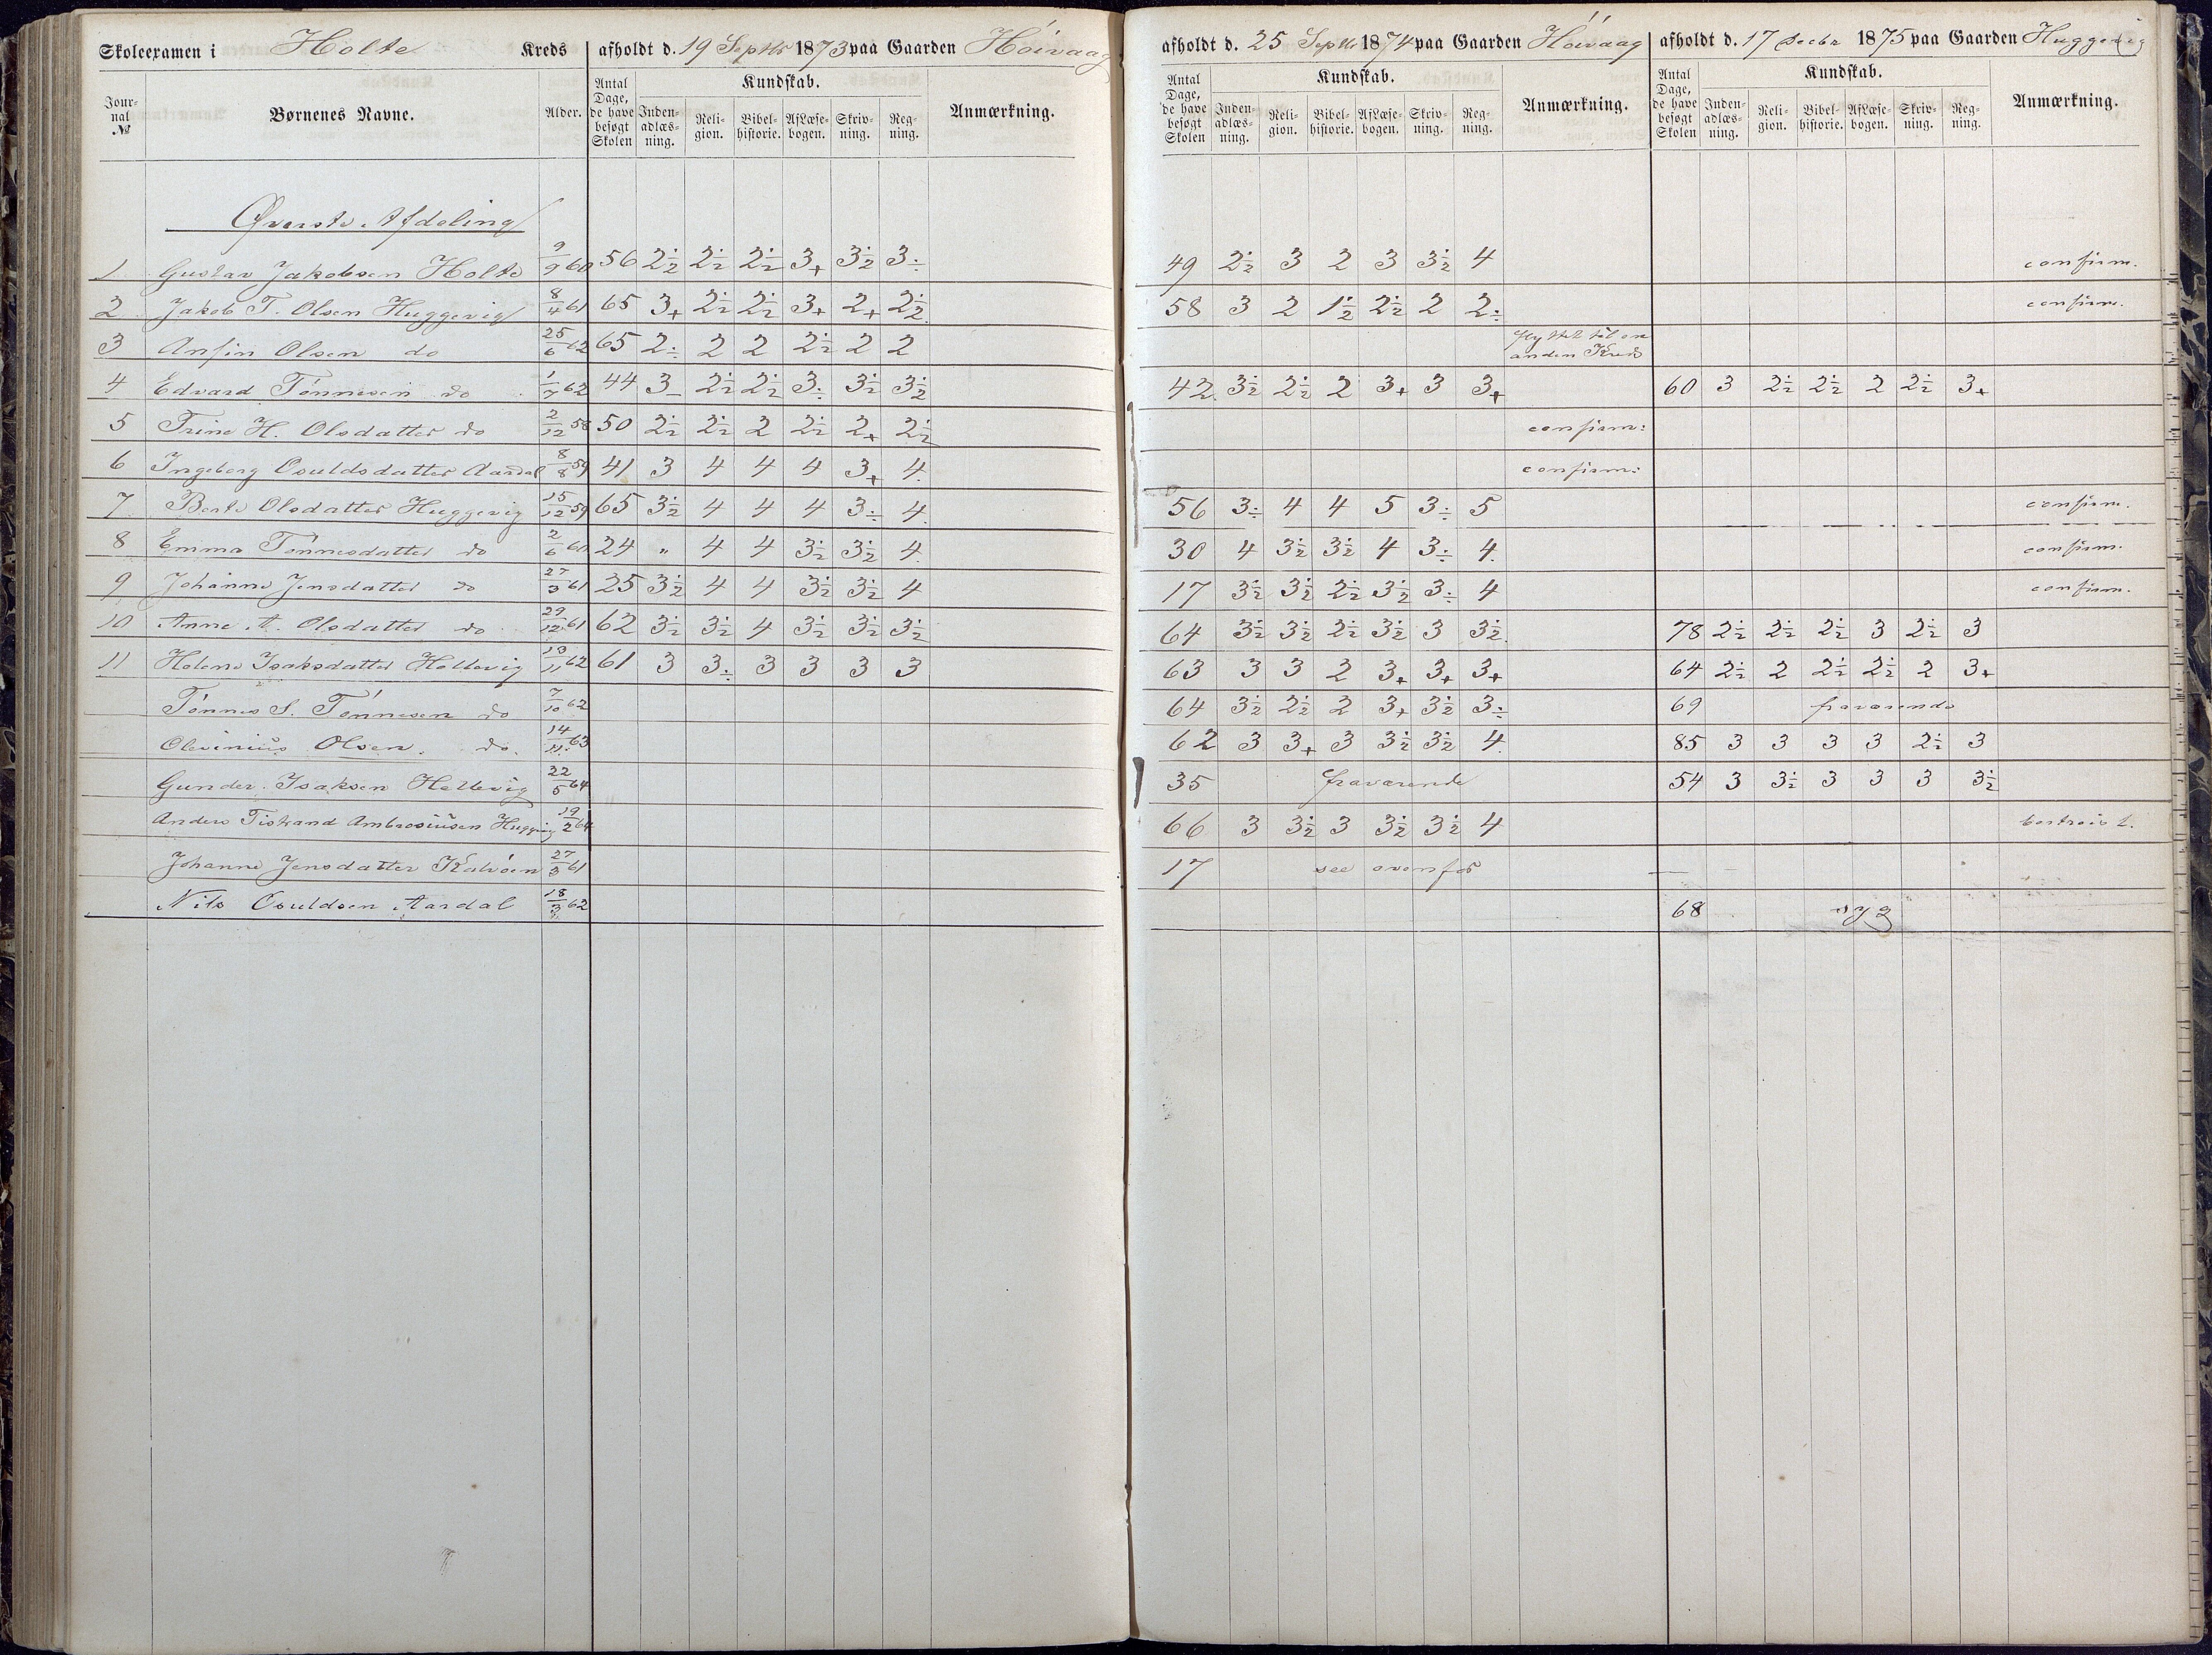 Skoleexamen i Holte Kreds afholdt d. 19 Septbr 1873 paa Gaarden Höivaag afholdt d. 25 Septbr 1874 paa Gaarden Höivaag afholdt d. 17 Decbr 1875 paa Gaarden Huggevig
Jour-nal № Børnenes Navne. Alder. Antal Dage, de have besøgt Skolen Kundskab. Inden-adlæs-ning. Reli-gion. Bibel-historie. AfLæse-bogen. Skriv-ning. Reg-ning. Anmærkning. Antal Dage, de have besøgt Skolen Kundskab. Inden-adlæs-ning. Reli-gion. Bibel-historie. AfLæse-bogen. Skriv-ning. Reg-ning. Anmærkning. Antal Dage, de have besøgt Skolen Kundskab. Inden-adlæs-ning. Reli-gion. Bibel-historie. AfLæse-bogen. Skriv-ning. Reg-ning. Anmærkning.
Øverste Afdeling
1 Gustav Jakobsen Holte 9/9 60 56 2½ 2½ 2½ 3+ 3½ 3÷ 49 2½ 3 2 3 3½ 4 confirm.
2 Jakob T. Olsen Huggevig 8/4 61 65 3+ 2½ 2½ 3+ 2+ 2½ 58 3 2 1½ 2½ 2 2÷ confirm.
3 Anfin Olsen do 25/6 62 65 2÷ 2 2 2½ 2 2 flyttet til en anden Kreds
4 Edvard Tönnesen do 1/7 62 44 3- 2½ 2½ 3÷ 3½ 3½ 42 3½ 2½ 2 3+ 3 3+ 60 3 2½ 2½ 2 2½ 3+
5 Trine H. Olsdatter do 2/12 58 50 2½ 2½ 2 2½ 2+ 2½ confirm:
6 Ingeborg Osuldsdatter Aardal 8/8 59 41 3 4 4 4 3+ 4. confirm:
7 Berte Olsdatter Huggevig 15/12 59 65 3½ 4 4 4 3÷ 4. 56 3÷ 4 4 5 3÷ 5 confirm.
8 Emma Tönnesdatter do 2/6 60 24 " 4 4 3½ 3½ 4. 30 4 3½ 3½ 4 3÷ 4. confirm.
9 Johanne Jensdatter do 27/3 61 25 3½ 4 4 3½ 3½ 4 17 3½ 3½ 2½ 3½ 3÷ 4 confirm.
10 Anne A. Olsdatter do 29/12 61 62 3½ 3½ 4 3½ 3½ 3½ 64 3½ 3½ 2½ 3½ 3 3½. 78 2½ 2½ 2½ 3 2½ 3
11 Helene Isaksdatter Hellevig 13/11 62 61 3 3÷ 3 3 3 3 63 3 3 2 3+ 3+ 3+ 64 2½ 2 2½ 2½ 2 3+
Tönnes S. Tönnesen do 7/10 62 64 3½ 2½ 2 3+ 3½ 3÷ 69 fraværende
Olevinius Olsen. do. 14/11 63 62 3 3+ 3 3½ 3½ 4. 85 3 3 3 3 2½ 3
Gunder Isaksen Hellevig 22/5 64 35 fraværende 54 3 3½ 3 3 3 3½
Anders Tistrand Ambrosiusen Huggevig 19/2 64 66 3 3½ 3 3½ 3½ 4 bortreist.
Johanne Jensdatter Kalvöen 27/3 61 17 see ovenfor
Nils Osuldsen Aardal 18/3 62 68 syg